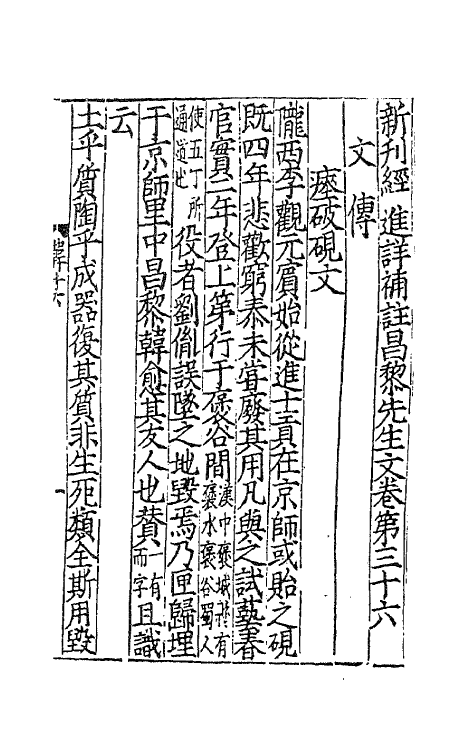 新刊經進詳補註昌黎先生文卷第三十六
文傳
瘞破硯文
隴西李觀元賓始從進士貢在京師或貽之硯
既四年悲歡窮泰未嘗廢其用凡與之試藝春
官實二年登上第行于褒谷間漢中褒城縣有褒水褒谷蜀人
使五丁所通道也役者劉胤誤墜之地毀焉乃匣歸埋
于京師里中昌黎韓愈其友人也賛一有而字且識
云
土乎質陶乎成器復其質非生死類全斯用毀
一